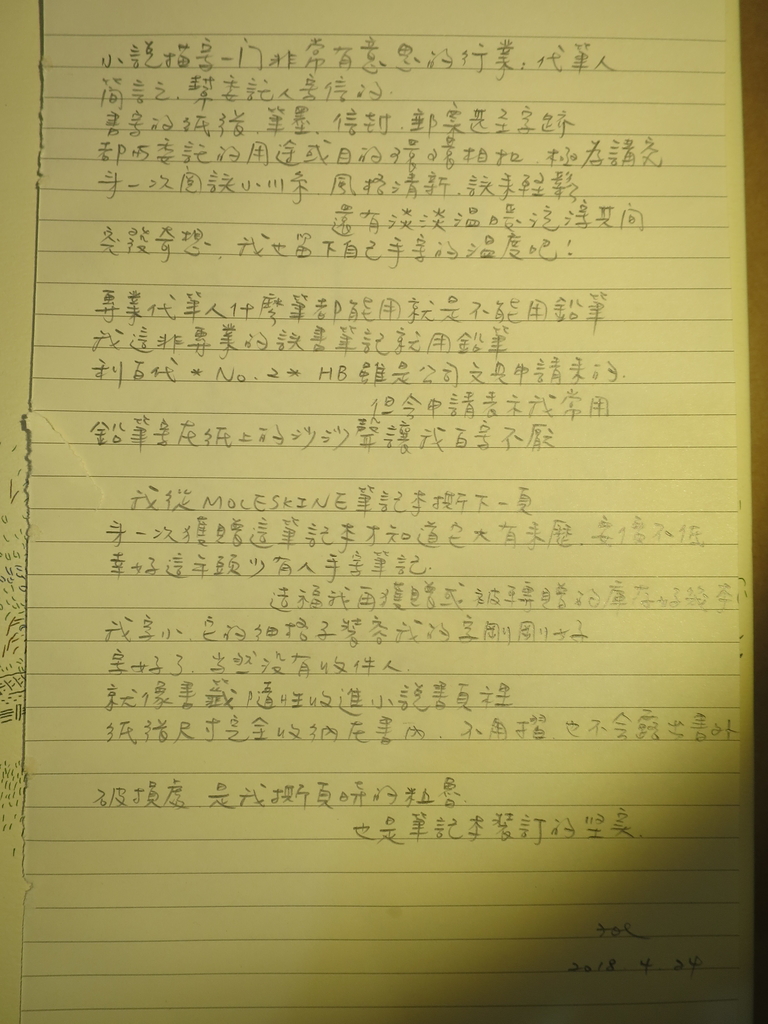 小說描寫一门非常有意思的行業:代筆人
簡言之,幫委託人寫信的.
書寫的紙張.筆墨.信封.郵票甚至字跡
都与委託的用途或目的環環相扣.極為講究
第一次閱讀小川糸.風格清新.讀來輕鬆
還有淡淡溫暖泛漾其间
突發奇想,我也留下自己手寫的溫度吧!
專業代筆人什麼筆都能用就是不能用鉛筆
我這非專業的讀書筆記就用鉛筆
利百代 * No.2 * HB 雖是公司文具申請來的.
但会申請表示我常用
鉛筆寫在紙上的沙沙聲讓我百寫不厭
我從 MOLESKINE 筆記本撕下一頁
第一次獲贈這筆記本才知道它大有來歷.要價不低
幸好這年頭少有人手寫筆記.
造福我再獲贈或被轉贈的庫存好幾本
我字小.它的細格子裝容我的字剛剛好
寫好了.当然沒有收件人.
就像書籤隨性收進小說書頁裡
紙張尺寸完全收納在書內.不用摺.也不会露出書外
破損處.是我撕頁時的粗魯.
也是筆記本裝訂的坚实.
2018.4.24